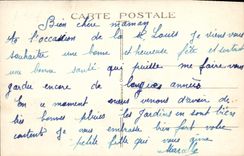 CARTE POSTALE
Bien chère maman
A l'occasion de la St Louis je viens vous
souhaiter une bonne et heureuse fête et surtout
une bonne santé qui puisse me faire vous
garder encore de longues années
En ce moment nous venons d'avoir de
très bonnes pluies les jardins en sont bien
contents je vous embrasse bien fort votre
petite fille qui vous aime
Marcelle